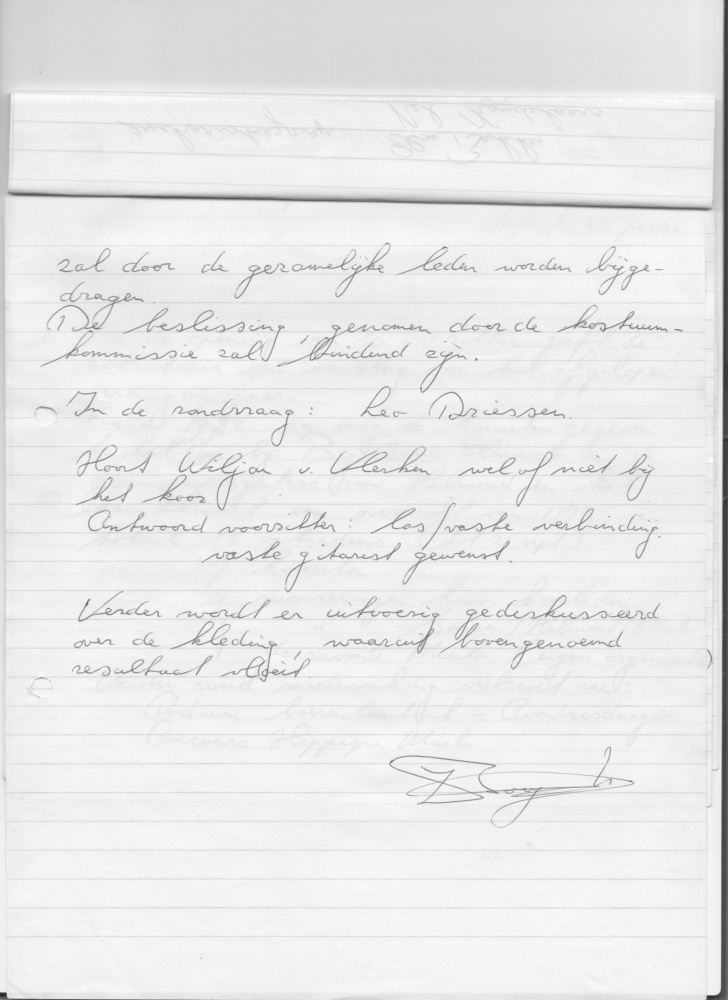 zal door de gezamelijke leden worden bijge-
dragen.
De beslissing, genomen door de kostuum-
kommissie zal bindend zijn.
In de rondvraag: Leo Driessen.
Hoort Wiljan v. Klerken wel of niet bij
het koor
Antwoord voorzitter: los/vaste verbinding.
vaste gitarist gewenst.
Verder wordt er uitvoerig gediskusseerd
over de kleding, waaruit bovengenoemd
resultaat vloeit.